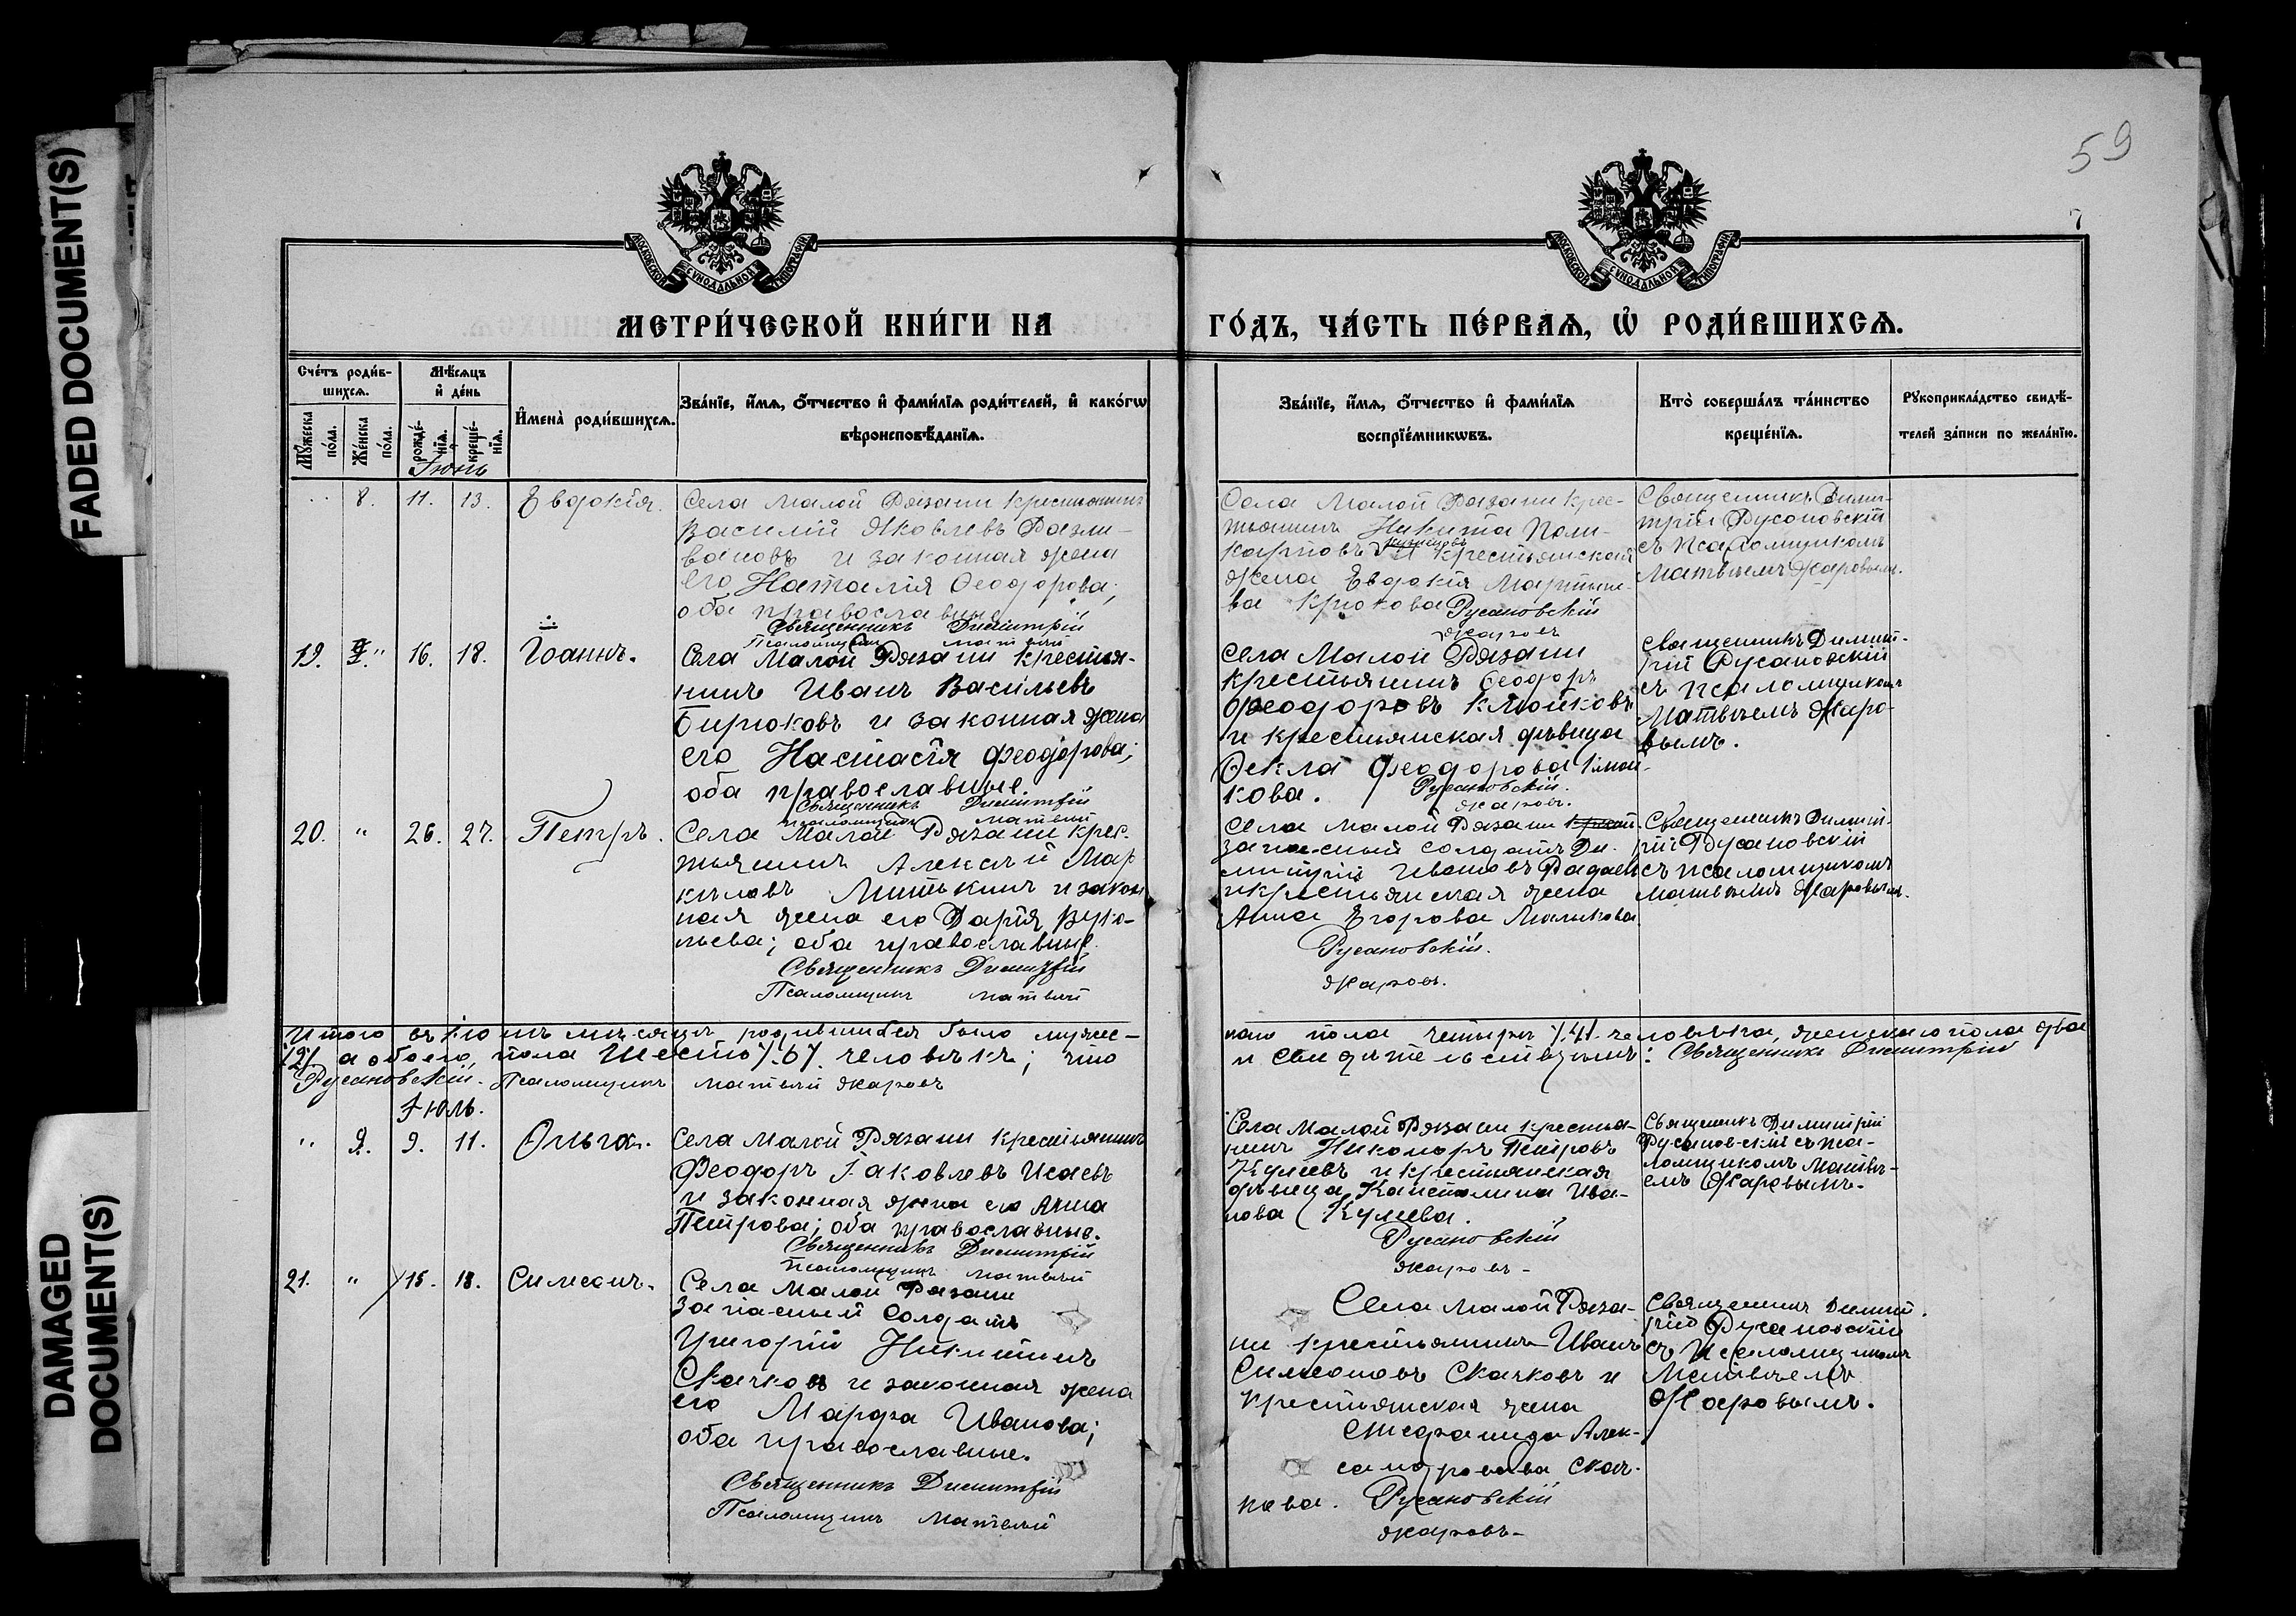 FADED DOCUMENT(S)
DAMAGED
DOCUMENT(S)
59
7
МОСКОВСКОЙ СѴНОДАЛЬНОЙ ТИПОГРАФІИ
МОСКОВСКОЙ СѴНОДАЛЬНОЙ ТИПОГРАФІИ
МЕТРИ́ЧЕСКОЙ КНИ́ГИ НА ГО́ДЪ, ЧА́СТЬ ПЕ́РВАѦ, Ѡ҆ РОДИ́ВШИХСѦ.
Сче́тъ роди́в-
шихсѧ.
Мꙋ́жеска
по́ла.
Же́нска
по́ла.
Мѣ́сѧцъ
и҆ де́нь
рожде́-
нїѧ.
креще́-
нїѧ.
И҆мена̀ роди́вшихсѧ.
Зва́нїе, и҆́мѧ, ѻ҆́тчество и҆ фами́лїѧ роди́телей, и҆ како́гѡ
вѣроисповѣ́данїѧ.
Зва́нїе, и҆́мѧ, ѻ҆́тчество и҆ фами́лїѧ
воспрїе́мникѡвъ.
Кто̀ соверша́лъ та́инство
креще́нїѧ.
Рꙋкоприкла́дство свидѣ́-
телей за́писи по жела́нїю.
Іюнь
8. 11. 13. Евдокія.
Села Малой Рязани крестьянинъ
Василій Яковлевъ Разли-
вановъ и законная жена
его Наталія Ѳеодорова;
оба православные
Священникъ Димитрій
Псаломщикъ Матвѣй
Села Малой Рязани крес-
тьянинъ Никита Поли-
карповъ и крестьянская
жена Евдокія Марты-
ва Крюкова
Русановскій
Жаровъ
Священникъ Дими-
трій Русановскій
съ псаломщикомъ
Матвѣемъ Жаровымъ.
19. " 16. 18. Іоаннъ.
Села Малой Рязани крестья-
нинъ Иванъ Васильевъ
Бирюковъ и законная жена
его Настасія Феодорова;
оба православные.
Священникъ Димитрій
Псаломщикъ Матвѣй
Села Малой Рязани
крестьянинъ Ѳеодоръ
Феодоровъ Клюйковъ
и крестьянская дѣвица
Ѳекла Феодорова Клюй-
кова.
Русановскій.
Жаровъ.
Священникъ Димит-
рій Русановскій
съ псаломщикомъ
Матвѣемъ Жаро-
вымъ.
20. " 26. 27. Петръ.
Села Малой Рязани крес-
тьянинъ Алексѣй Мар
кѣловъ Митькинъ и закон
ная жена его Дарія
оба православные.
Священникъ Димитрій
Псаломщикъ Матвѣй
Села Малой Рязани
запасный солдатъ Ди-
митрій Ивановъ Радаевъ
и крестьянская жена
Анна Егорова Маликова
Русановскій.
Жаровъ.
Священникъ Димит-
рій Русановскій
съ псаломщикомъ
Матвѣемъ Жаровымъ.
Итого въ Іюнѣ мѣсяцѣ родившихся было муже- каго пола четыре /4/ человѣка, женскаго пола два
/2/ а обоего пола шесть /6/ человѣкъ; что и свидѣтельствуемъ: Священникъ Димитрій
Русановскій. Псаломщикъ Матвѣй Жаровъ
Іюль.
" 9. 9. 11. Ольга.
Села Малой Рязани крестьянинъ
Феодоръ Іаковлевъ Исаевъ
и законная жена его Анна
Петрова; оба православные.
Священникъ Димитрій
Псаломщикъ Матвѣй
Села Малой Рязани крестья-
нинъ Никоноръ Петровъ
и крестьянская
дѣвица Капитолина Ива-
нова
Русановскій
Жаровъ-
Священникъ Димитрій
Русановскій съ пса-
ломщикомъ Матвѣ-
емъ Жаровымъ.
21. " 15. 18. Симеонъ.
Села Малой Рязани
запасный солдатъ
Григорій Никитинъ
Скачковъ и законная жена
его Марфа Иванова;
оба православные.
Священникъ Димитрій
Псаломщикъ Матвѣй
Села Малой Ряза-
ни крестьянинъ Иванъ
Симеоновъ Скачковъ и
крестьянская жена
Стефанида Алек-
сандровова Скач-
кова.
Русановскій
Жаровъ-
Священникъ Димит-
рій Русановскій
съ псаломщикомъ
Матвѣемъ
Жаровымъ.